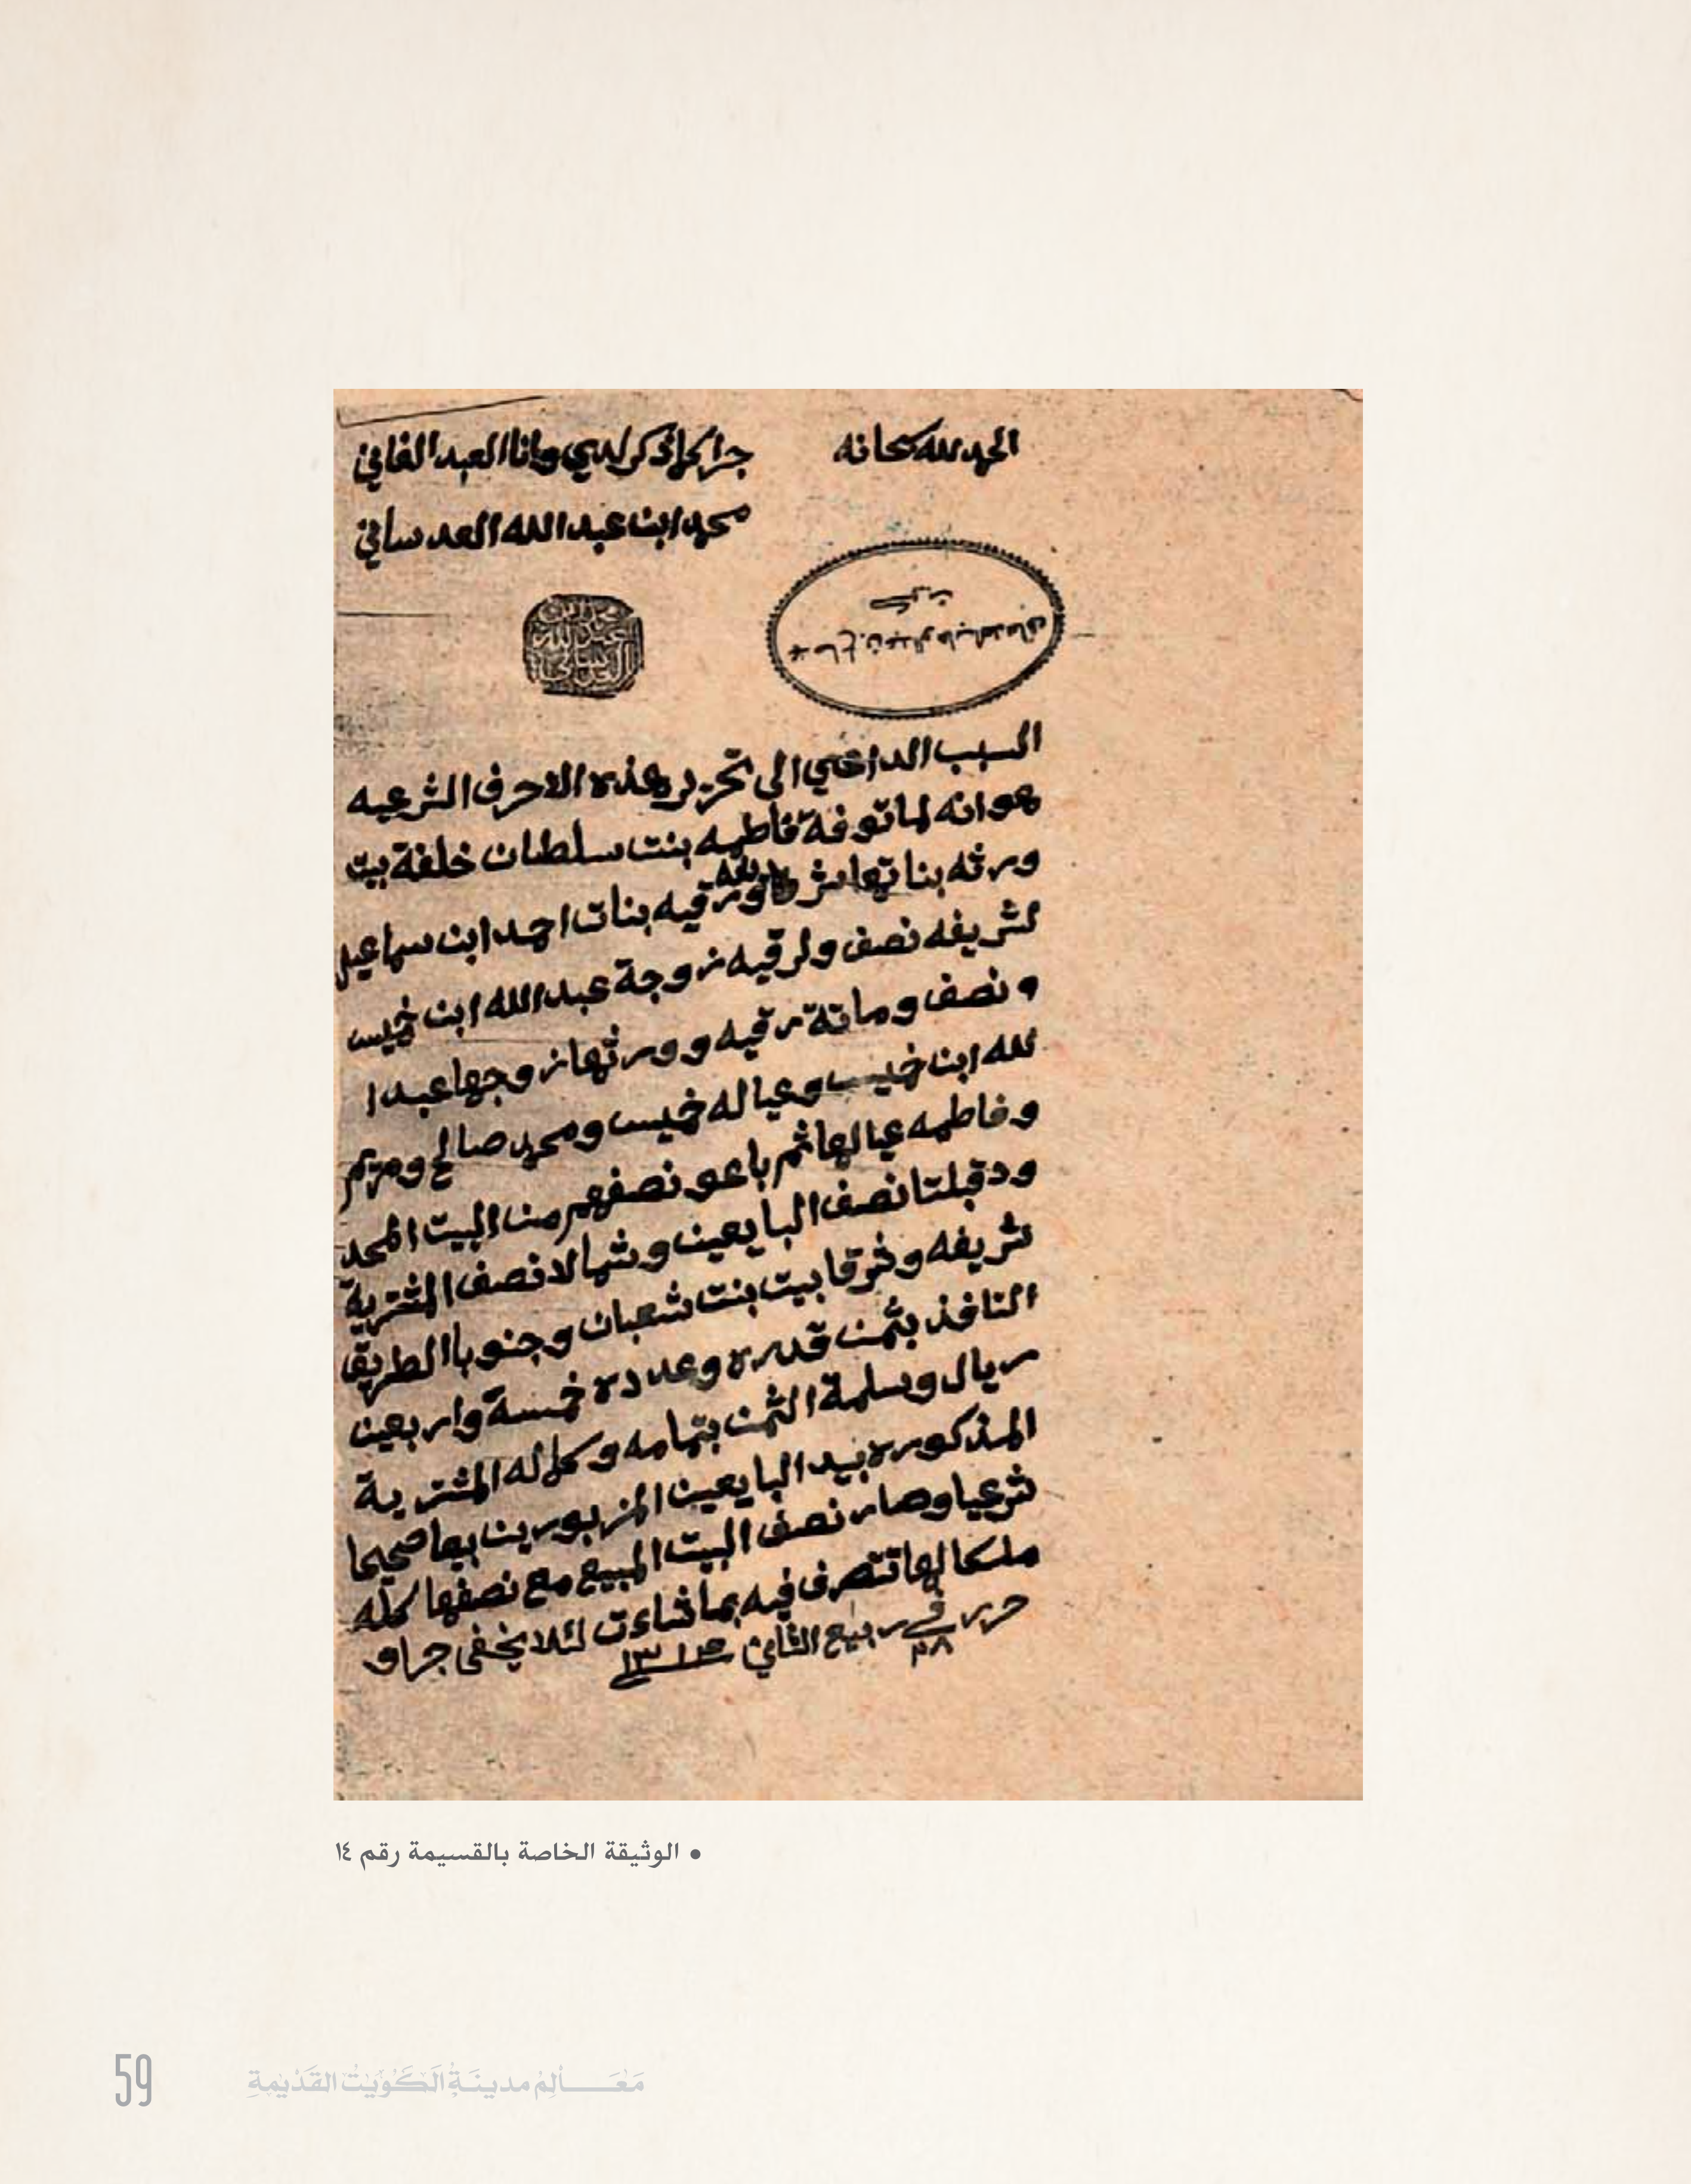 الحمد لله سبحانه
جرا كما ذكر لدي وانا العبد الفاني
محمد ابن عبد الله العدساني
كويت
محمد بن
عبد الله
العدساني
السبب الداعي الى تحرير هذه الاحرف الشرعيه
هو انه لما توفة فاطمه بنت سلطان خلفة بيت
ورثه بناتها شريفه ورقيه بنات احمد ابن سماعيل
لشريفه نصف ولرقيه زوجة عبد الله ابن خميس
ونصف وماتة رقيه وورثها زوجها عبد ا
لله ابن خميس وعياله خميس ومحمد صالح ومريم
وفاطمه عيالها ثم باعو نصفهم من البيت المحد
ود قبلتا نصف البايعين وشمالا نصف المشترية
شريفه وشرقا بيت بنت شعبان وجنوبا الطريق
النافذ بثمن قدره وعدده خمسة واربعين
ريال وسلمة الثمن بتمامه وكماله المشترية
المذكوره بيد البايعين المزبورين بيعا صحيحا
شرعيا وصار نصف البيت المبيع مع نصفها كله
ملكا لها تتصرف فيه بما شاءت لئلا يخفى جرا و
حرر في ٢٨ ربيع الثاني
• الوثيقة الخاصة بالقسيمة رقم ١٤
59
مَعَـــالِمُ مدينَةِ الكُوَيْتْ القَدْيمةِ